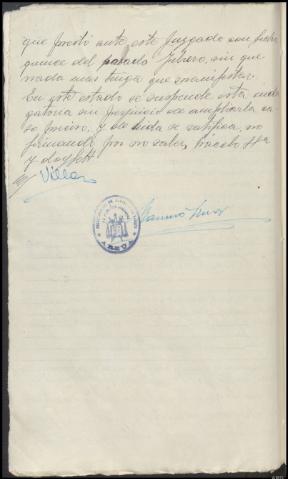 que prestó ante este Juzgado con fecha
quince del pasado Febrero, sin que
nada más tenga que manifestar.
En este estado se suspende esta inda
gatoria sin perjuicio de ampliarla ca
so preciso, y de leida se ratifica, no
firmando por no saber, hácelo SSª
y doy fé
Villar
ARZUA